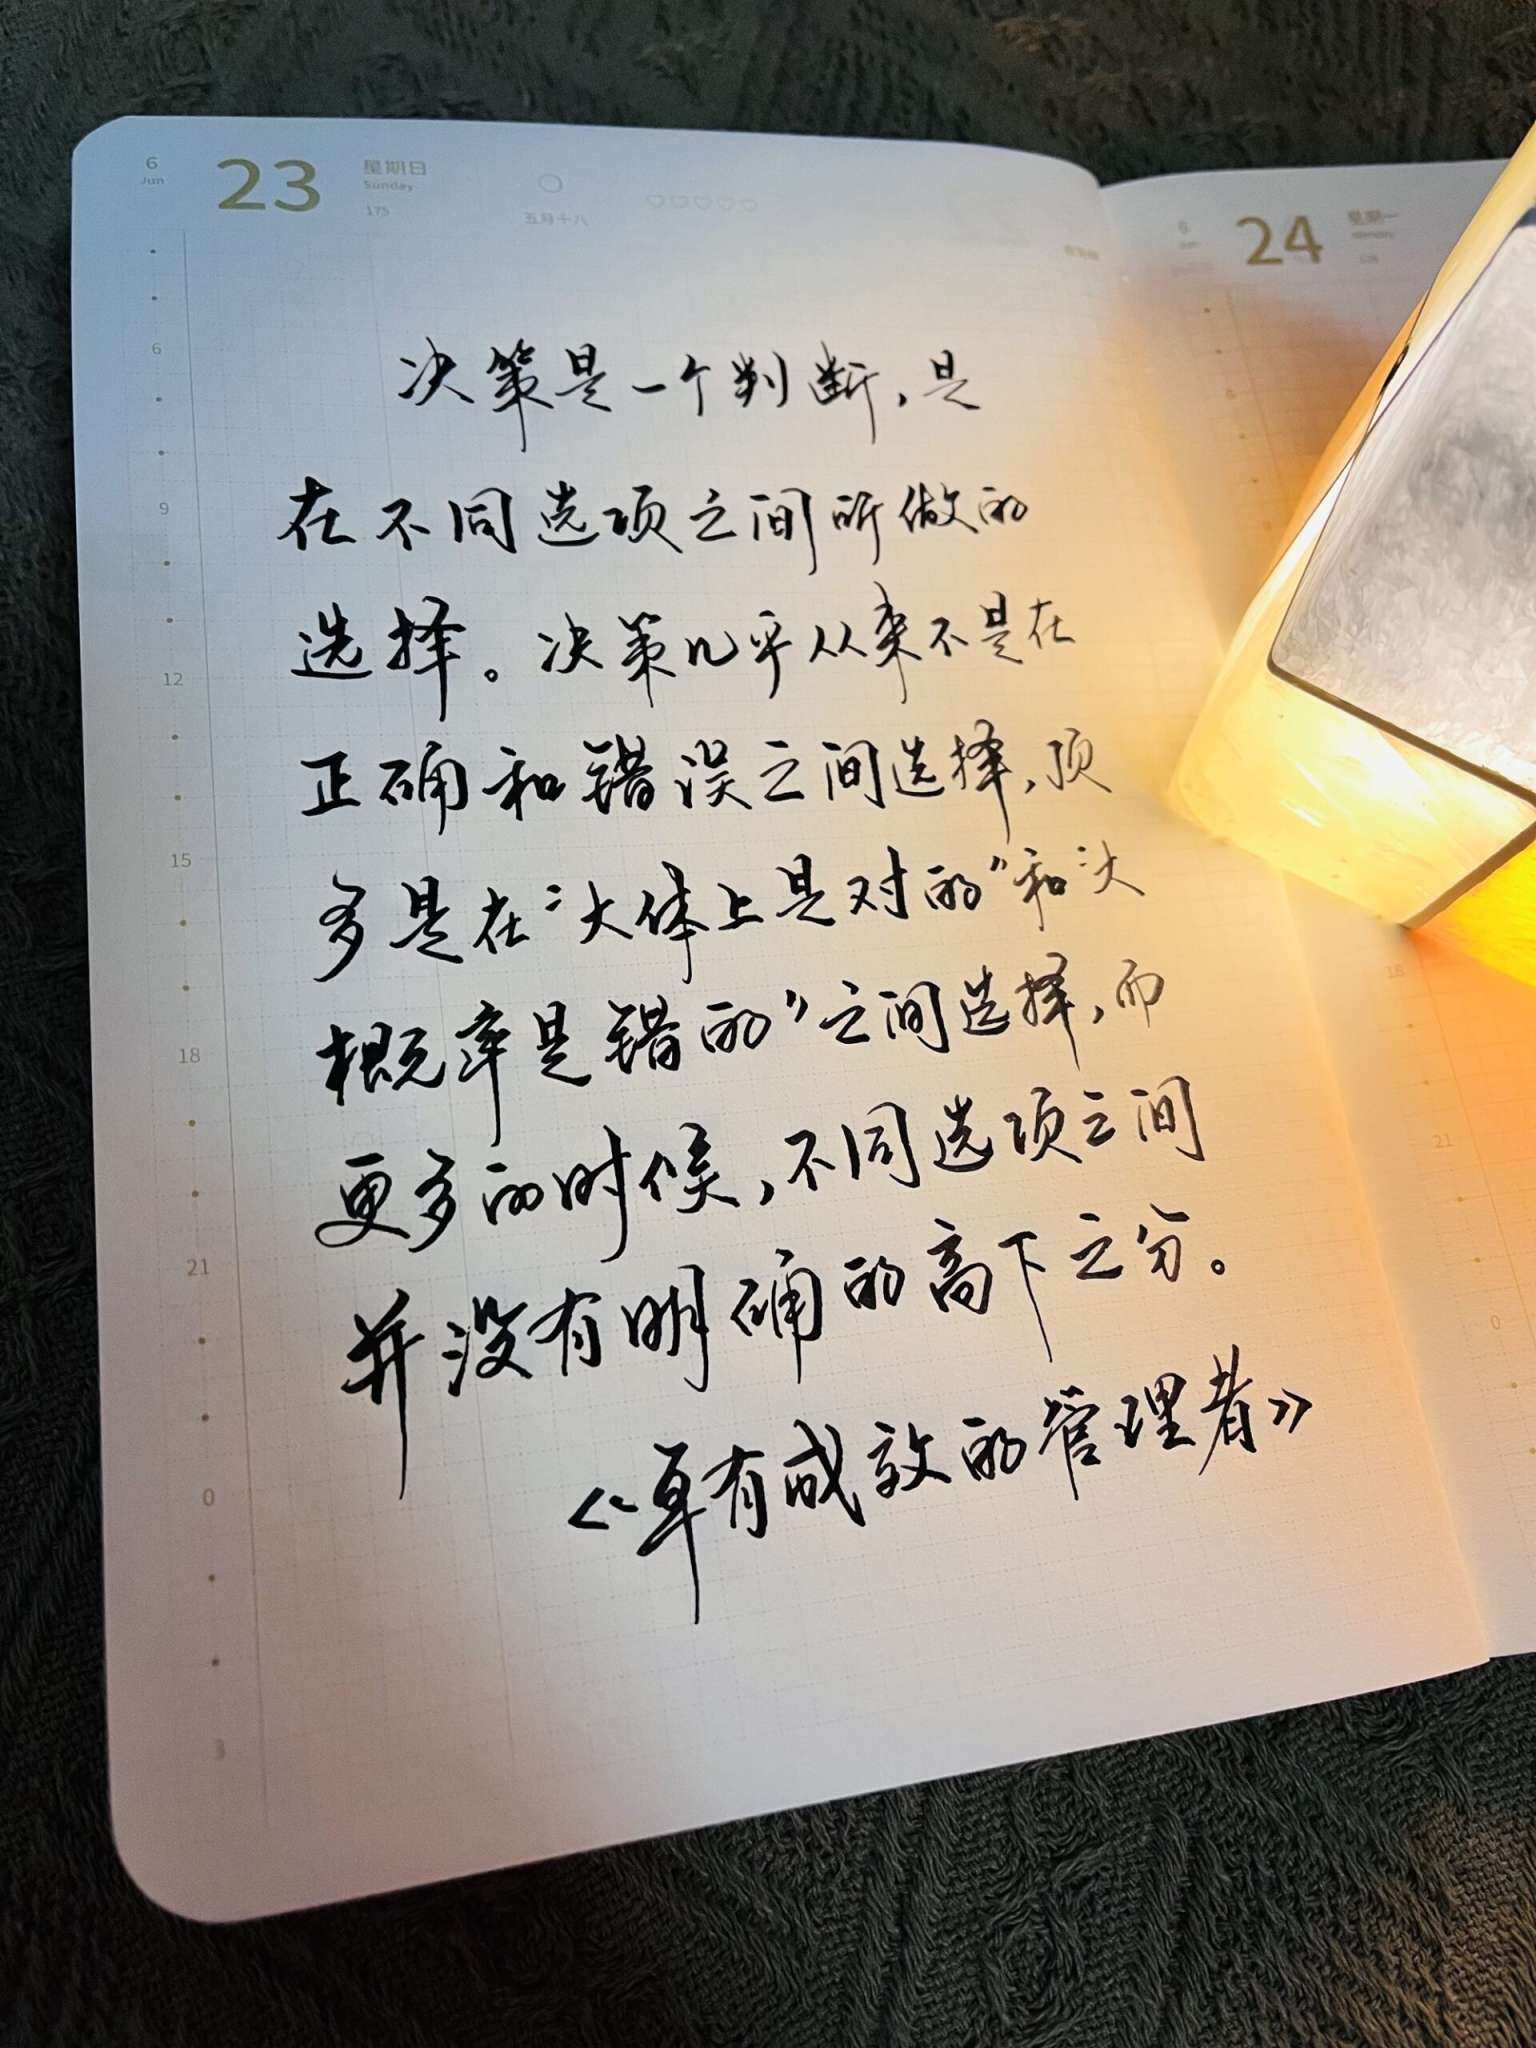 6
Jun
23
星期日
Sunday
175
五月十八
6
24
星期一
决策是一个判断，是
在不同选项之间所做的
选择。决策几乎从来不是在
正确和错误之间选择，顶
多是在“大体上是对的”和“大
概率是错的”之间选择，而
更多的时候，不同选项之间
并没有明确的高下之分。
《卓有成效的管理者》
6
9
12
15
18
21
0
3
18
21
0